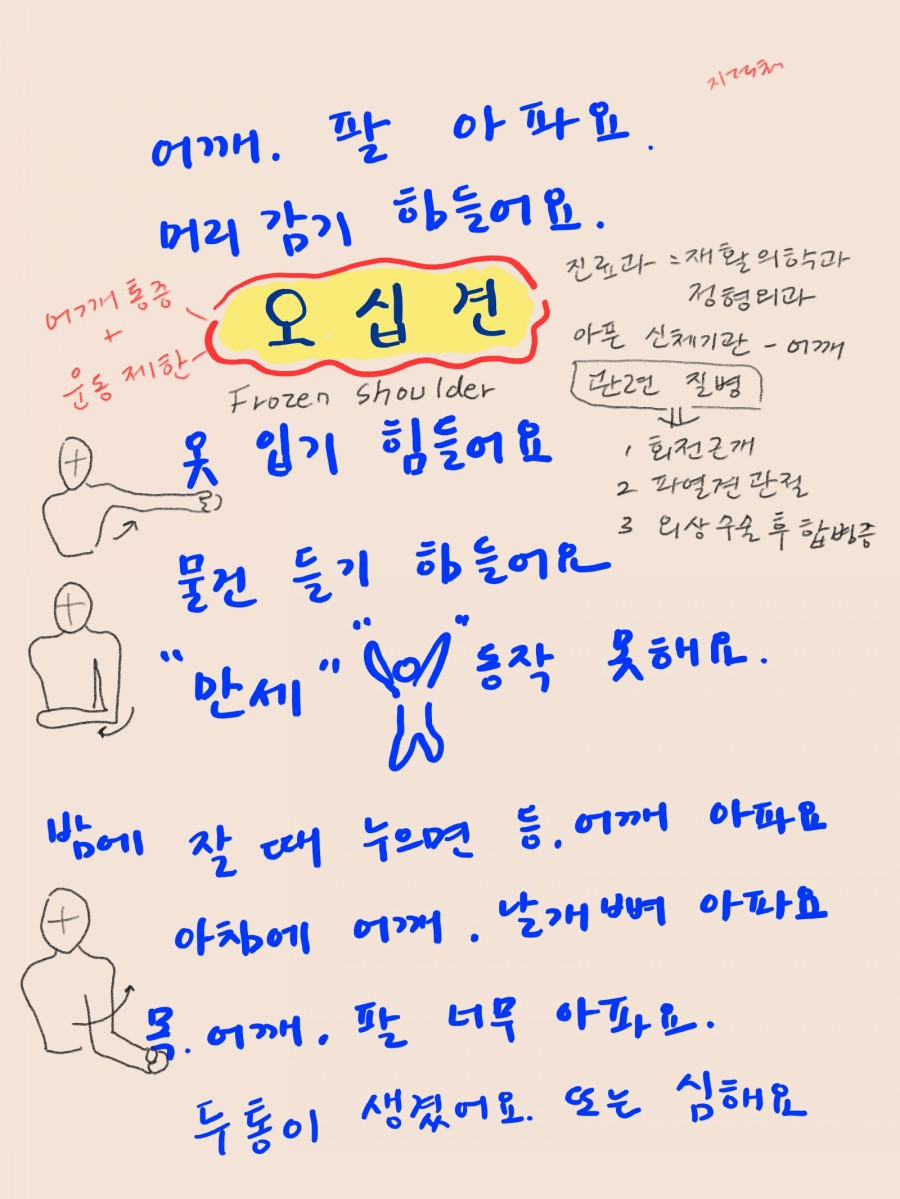 어깨. 팔 아파요.
머리 감기 힘들어요.
어깨통증
+
운동 제한
오십견
Frozen shoulder
진료과 = 재활의학과
정형외과
아픈 신체기관 - 어깨
관련 질병
1 회전근개
2 파열견관절
3 외상수술 후 합병증
옷 입기 힘들어요
물건 들기 힘들어요
"만세" " " 동작 못해요.
밤에 잘 때 누으면 등. 어깨 아파요
아침에 어깨. 날개뼈 아파요
목. 어깨. 팔 너무 아파요.
두통이 생겼어요. 또는 심해요